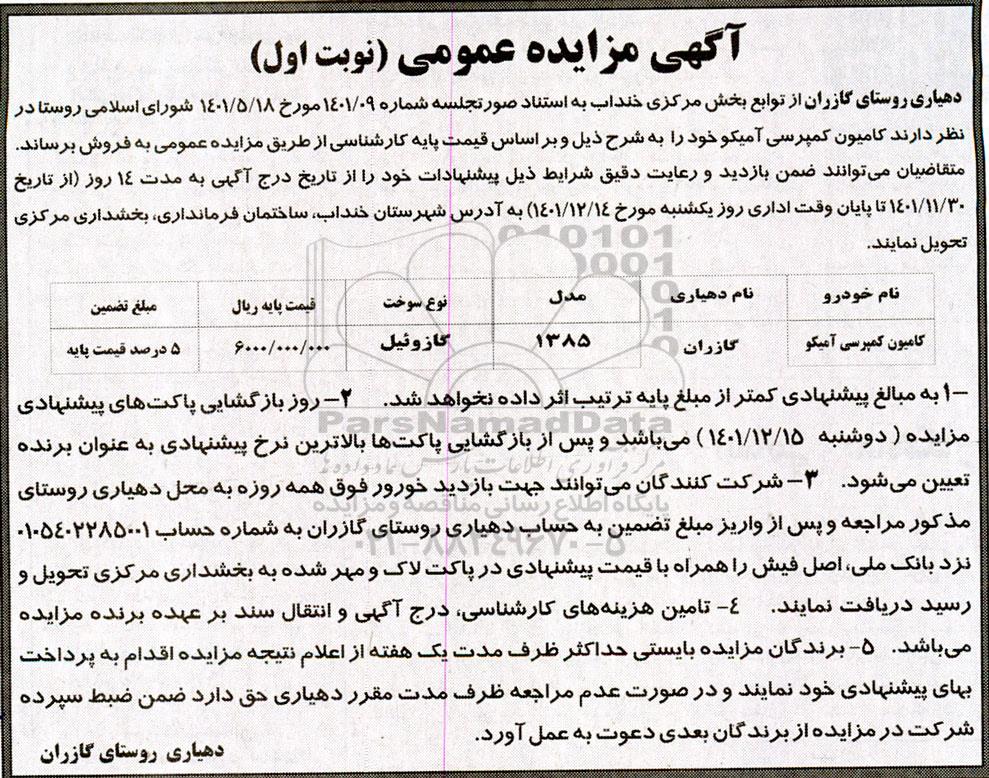 آگهی مزایده عمومی (نوبت اول)
دهیاری روستای گازران از توابع بخش مرکزی خنداب به استناد صورتجلسه شماره ۱۴۰۱/۰۹ مورخ ۱۴۰۱/۵/۱۸ شورای اسلامی روستا در
نظر دارند کامیون کمپرسی آمیکو خود را به شرح ذیل و بر اساس قیمت پایه کارشناسی از طریق مزایده عمومی به فروش برساند.
متقاضیان می‌توانند ضمن بازدید و رعایت دقیق شرایط ذیل پیشنهادات خود را از تاریخ درج آگهی به مدت ۱۴ روز (از تاریخ
۱۴۰۱/۱۱/۳۰ تا پایان وقت اداری روز یکشنبه مورخ ۱۴۰۱/۱۲/۱۴) به آدرس شهرستان خنداب، ساختمان فرمانداری، بخشداری مرکزی
تحویل نمایند.
نام خودرو نام دهیاری مدل نوع سوخت قیمت پایه ریال مبلغ تضمین
کامیون کمپرسی آمیکو گازران ۱۳۸۵ گازوئیل ۶۰۰۰/۰۰۰/۰۰۰ ۵ درصد قیمت پایه
۱- به مبالغ پیشنهادی کمتر از مبلغ پایه ترتیب اثر داده نخواهد شد. ۲- روز بازگشایی پاکت‌های پیشنهادی
مزایده ( دوشنبه ۱۴۰۱/۱۲/۱۵ ) می‌باشد و پس از بازگشایی پاکت‌ها بالاترین نرخ پیشنهادی به عنوان برنده
تعیین می‌شود. ۳- شرکت کنندگان می‌توانند جهت بازدید خورور فوق همه روزه به محل دهیاری روستای
مذکور مراجعه و پس از واریز مبلغ تضمین به حساب دهیاری روستای گازران به شماره حساب ۰۱۰۵۴۰۲۲۸۵۰۰۱
نزد بانک ملی، اصل فیش را همراه با قیمت پیشنهادی در پاکت لاک و مهر شده به بخشداری مرکزی تحویل و
رسید دریافت نمایند. ۴- تامین هزینه‌های کارشناسی، درج آگهی و انتقال سند بر عهده برنده مزایده
می‌باشد. ۵- برندگان مزایده بایستی حداکثر ظرف مدت یک هفته از اعلام نتیجه مزایده اقدام به پرداخت
بهای پیشنهادی خود نمایند و در صورت عدم مراجعه ظرف مدت مقرر دهیاری حق دارد ضمن ضبط سپرده
شرکت در مزایده از برندگان بعدی دعوت به عمل آورد.
دهیاری روستای گازران
ParsNamadData
پایگاه اطلاع رسانی مناقصه و مزایده
۰۲۱-۸۸۳۴۹۶۷۰-۵